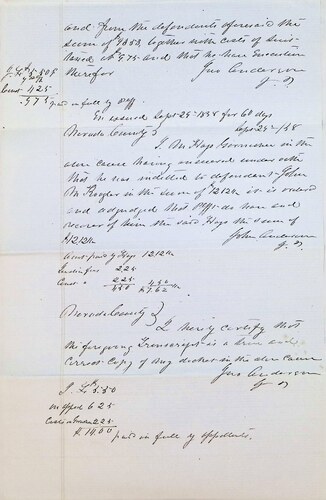 and from the defendants aforesaid the
sum of $ together with costs of suit
taxed at 9.75 and that he have Execution
therefor
Jno Anderson
J. P.
Cost 4 25
9 75 paid in full by Plff
Ex issued Sept 25 1858 for 60 days
Nevada County } Sept 25 - /58
J. M. Hays Garnishee in the
above cause having answered under oath
that he was indebted to defendant John
in the sum of 12.12 1/2 it is ordered
and adjudged that Plff do have and
recover of him the said Hays the sum of
$12.12 1/2
John Anderson
J. P.
Amt paid by Hays 12.12 1/2
fees 2.25
Cost " 2.25
4.50 4.50
7.62 1/2
Nevada County }
I hereby certify that
the foregoing Transcript is a true and
correct Copy of my docket in the above cause
Jno Anderson
J. P.
J. 5.50
on appeal 6 25
2.25
$ 14.00 paid in full by appellants.